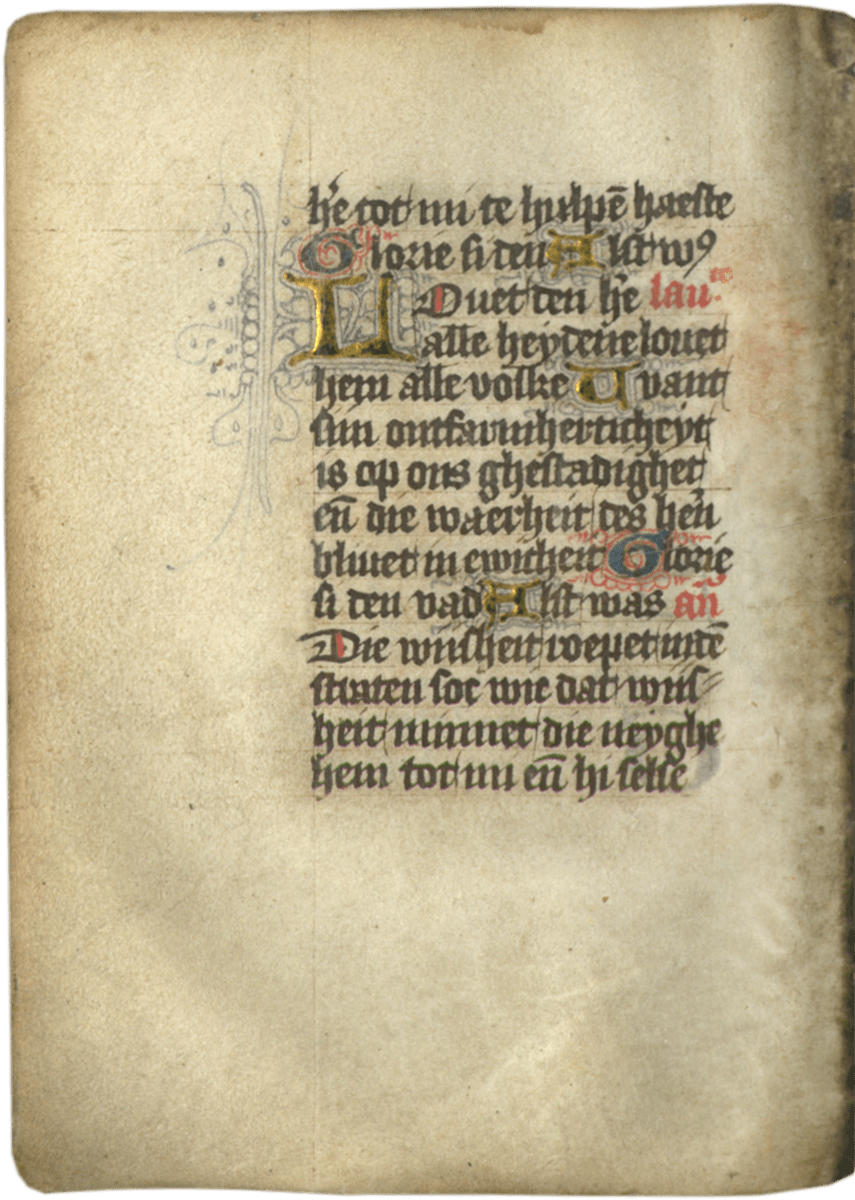 h'e tot mi te hulpē haeste
Glorie si den Alst w9
LOuet den h'e lau
alle heydene louet
hem alle volke Want
sijn ontfarmherticheyt
is op ons ghestadighet
eñ die waerheit des hern
bliuet in ewicheit Glorie
si den vad Alst was añ
Die wijsheit roepet indē
straten soe wie dat wijs
heit minnet die neyghe
hem tot mi eñ hi selse